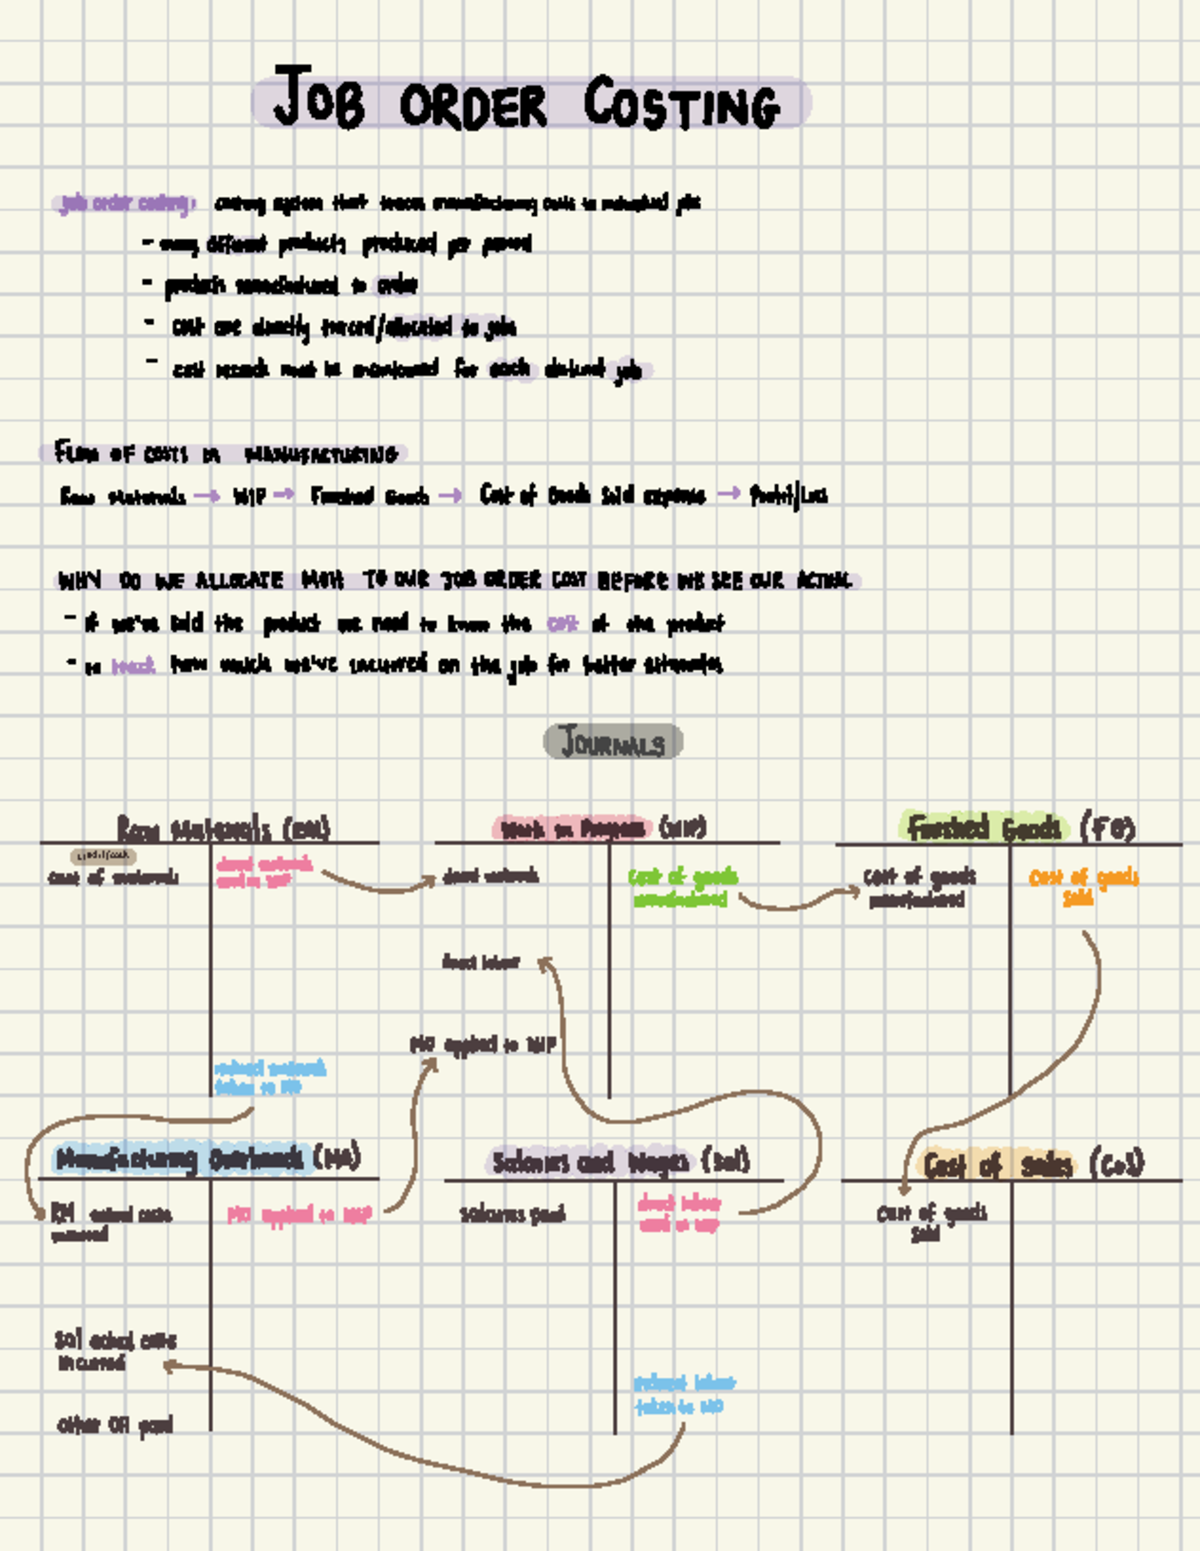 JOB ORDER COSTING
job order costing: costing system that traces manufacturing costs to individual jobs
- many different products produced per period
- products manufactured to order
- cost are directly traced/allocated to jobs
- cost records must be maintained for each distinct job
FLOW OF COSTS IN MANUFACTURING
Raw Materials → WIP → Finished Goods → Cost of Goods Sold expense → Profit/Loss
WHY DO WE ALLOCATE MOH TO OUR JOB ORDER COST BEFORE WE SEE OUR ACTUAL
- if we've sold the product we need to know the cost of the product
- to track how much we've incurred on the job for better estimates
JOURNALS
Raw Materials (RM)
Work in Progress (WIP)
Finished Goods (FG)
cost of materials
direct materials
used in WIP
direct materials
cost of goods
manufactured
cost of goods
manufactured
cost of goods
sold
direct labour
MO applied to WIP
indirect materials
taken to MO
Manufacturing Overheads (MO)
Salaries and Wages (Sal)
Cost of Sales (CoS)
RM actual costs
incurred
MO applied to WIP
salaries paid
direct labour
used in WIP
cost of goods
sold
Sal actual costs
incurred
indirect labour
taken to MO
other OH paid